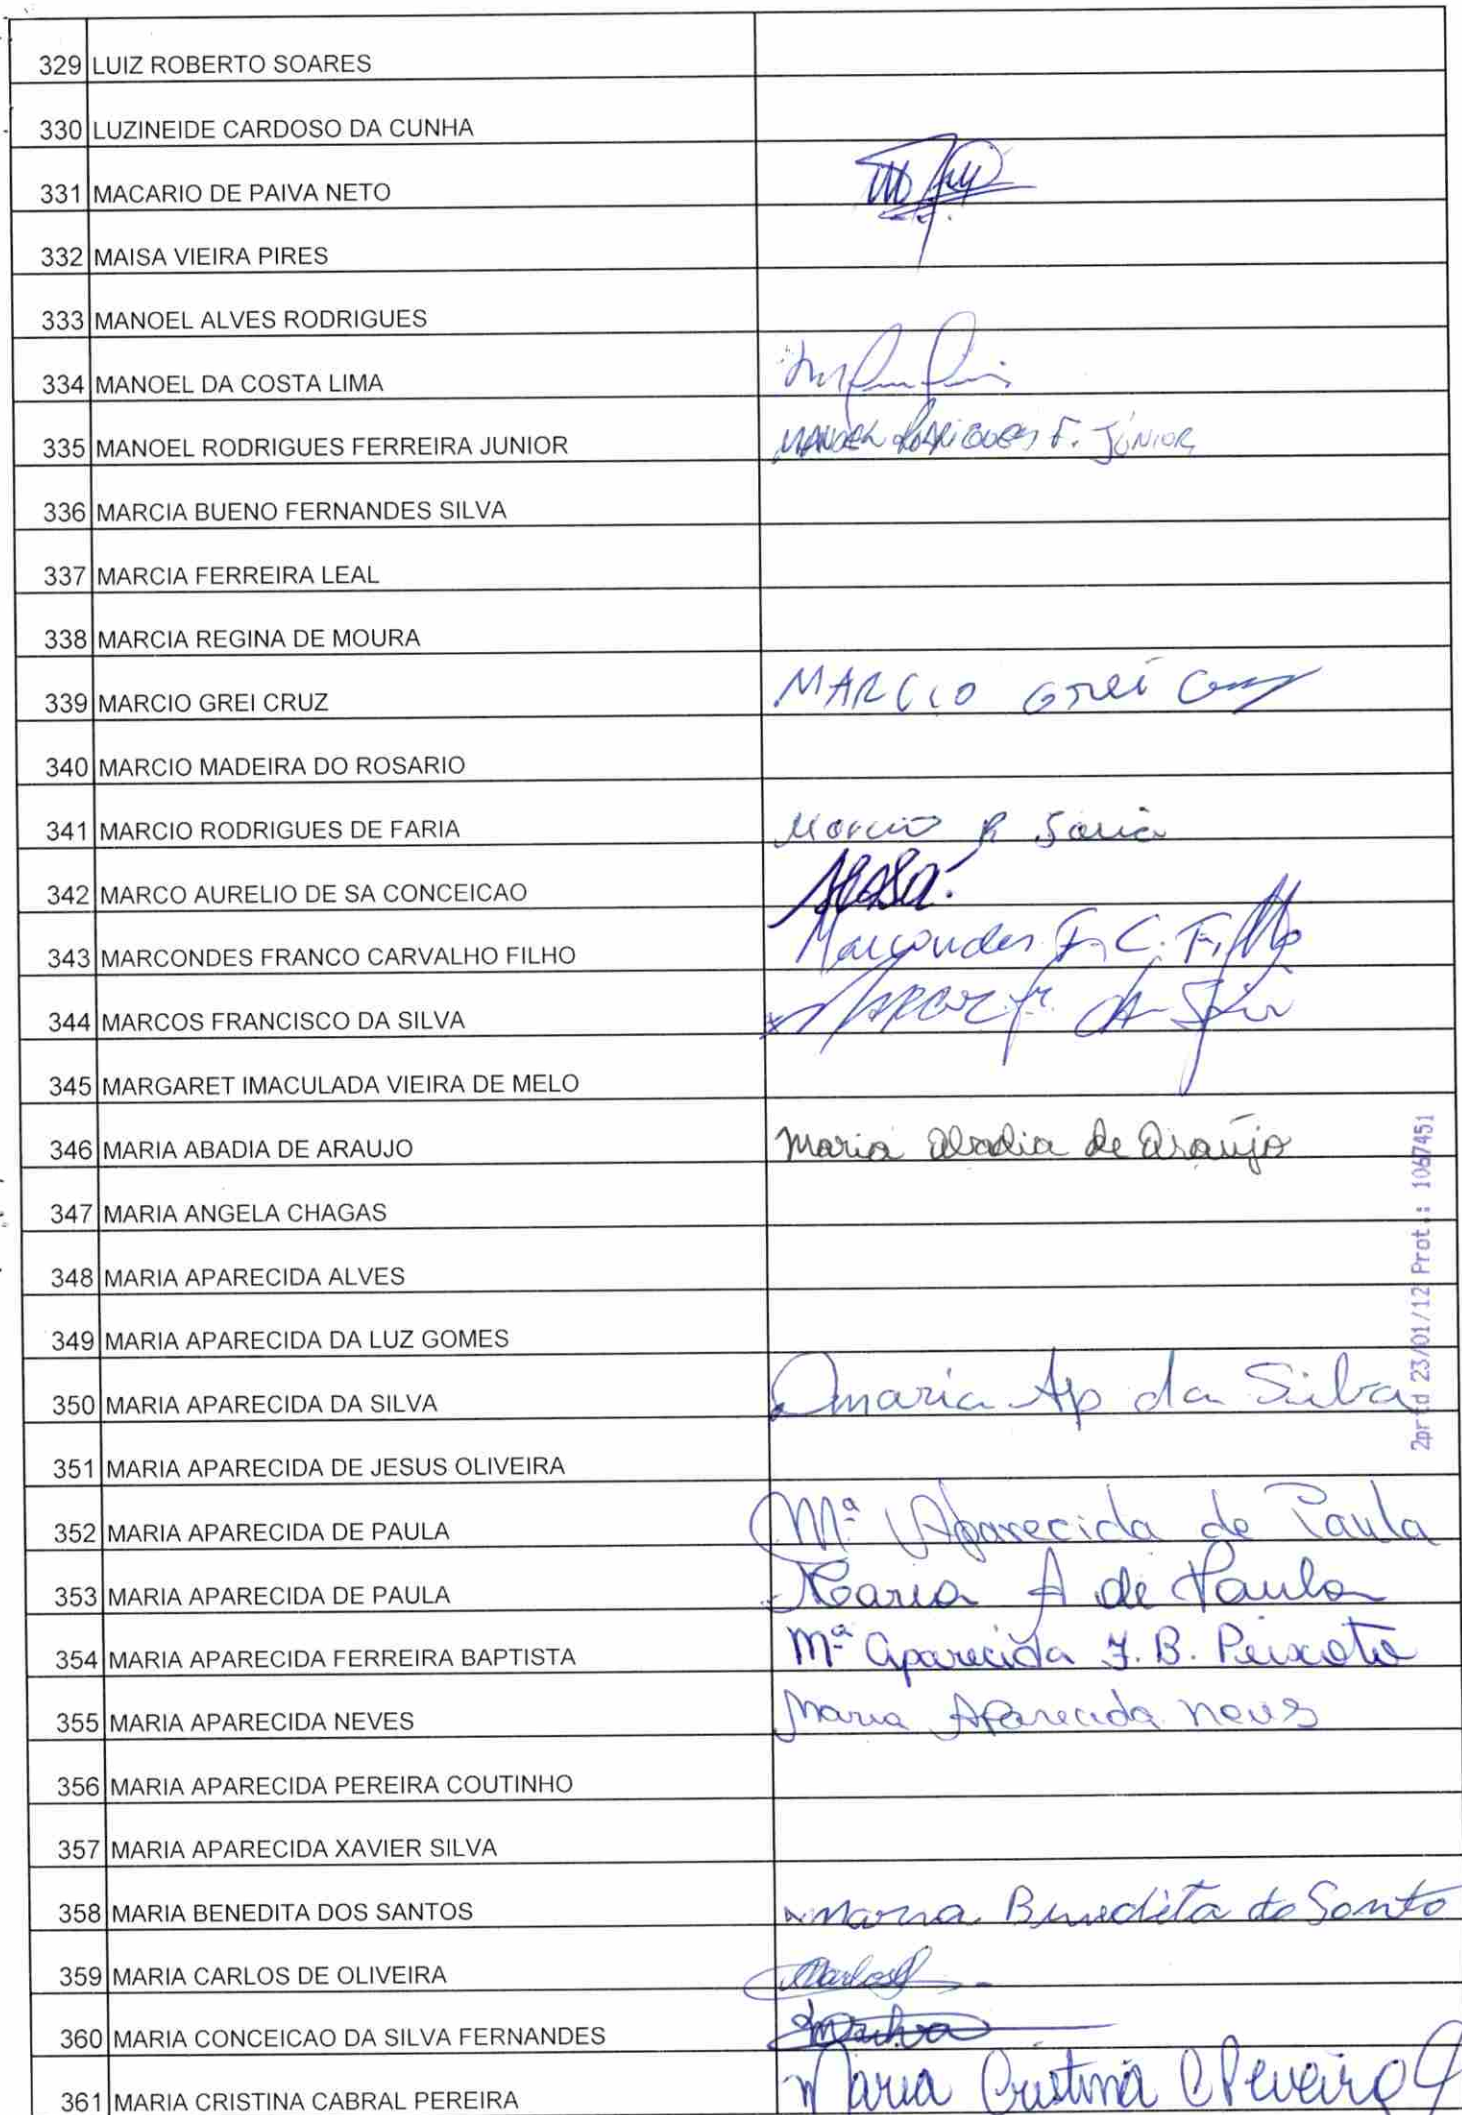 329 LUIZ ROBERTO SOARES
330 LUZINEIDE CARDOSO DA CUNHA
331 MACARIO DE PAIVA NETO
332 MAISA VIEIRA PIRES
333 MANOEL ALVES RODRIGUES
334 MANOEL DA COSTA LIMA
335 MANOEL RODRIGUES FERREIRA JUNIOR MANOEL RODRIGUES F. JÚNIOR
336 MARCIA BUENO FERNANDES SILVA
337 MARCIA FERREIRA LEAL
338 MARCIA REGINA DE MOURA
339 MARCIO GREI CRUZ MARCIO Grei Cruz
340 MARCIO MADEIRA DO ROSARIO
341 MARCIO RODRIGUES DE FARIA Marcio R Faria
342 MARCO AURELIO DE SA CONCEICAO
343 MARCONDES FRANCO CARVALHO FILHO Marcondes F. C. Filho
344 MARCOS FRANCISCO DA SILVA
345 MARGARET IMACULADA VIEIRA DE MELO
346 MARIA ABADIA DE ARAUJO Maria Abadia de Araújo
347 MARIA ANGELA CHAGAS
348 MARIA APARECIDA ALVES
349 MARIA APARECIDA DA LUZ GOMES
350 MARIA APARECIDA DA SILVA Maria Ap da Silva
351 MARIA APARECIDA DE JESUS OLIVEIRA
352 MARIA APARECIDA DE PAULA Mª Aparecida de Paula
353 MARIA APARECIDA DE PAULA Maria A de Paula
354 MARIA APARECIDA FERREIRA BAPTISTA Mª Aparecida F. B. Peixoto
355 MARIA APARECIDA NEVES Maria Aparecida Neves
356 MARIA APARECIDA PEREIRA COUTINHO
357 MARIA APARECIDA XAVIER SILVA
358 MARIA BENEDITA DOS SANTOS Maria Benedita do Santo
359 MARIA CARLOS DE OLIVEIRA
360 MARIA CONCEICAO DA SILVA FERNANDES
361 MARIA CRISTINA CABRAL PEREIRA Maria Cristina C Pereira
2prtd 23/01/12 Prot.: 1067451